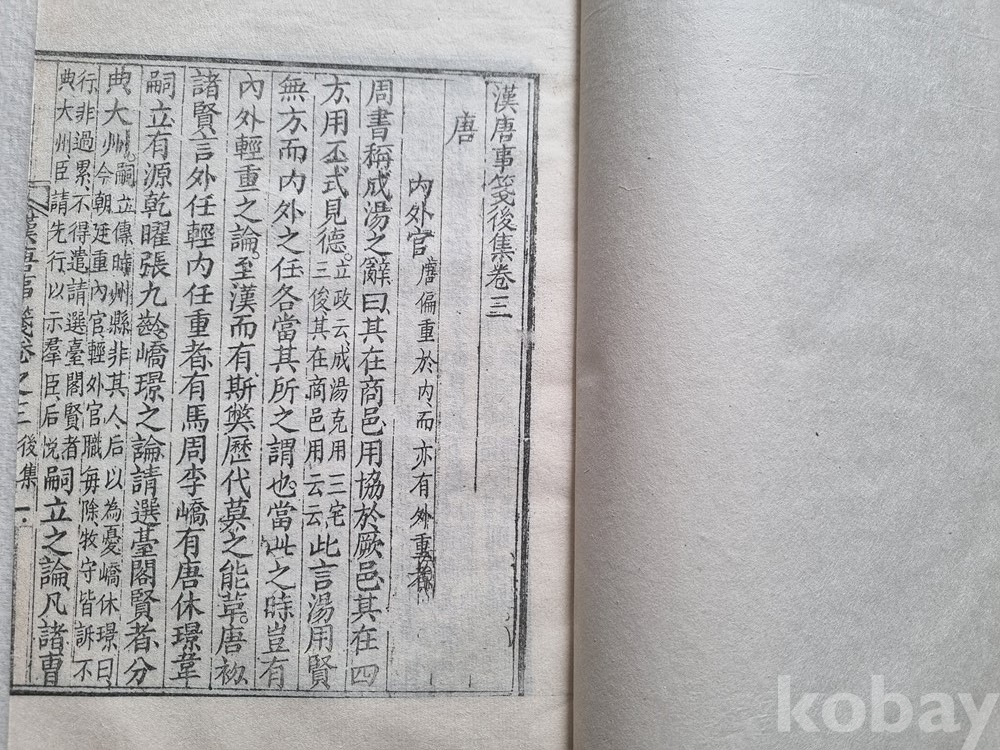 漢唐事箋後集卷三
唐
內外官
唐偏重於內而亦有外重者
周書稱成湯之辭曰其在商邑用協於厥邑其在四
方用丕式見德
立政云成湯克用三宅
三俊其在商邑用云云
此言湯用賢
無方而内外之任各當其所之謂也當此之時豈有
內外輕重之論至漢而有斯獘歷代莫之能革唐初
諸賢言外任輕内任重者有馬周李嶠有唐休璟韋
嗣立有源乾曜張九齡嶠璟之論請選臺閣賢者分
典大州
嗣立傳時州縣非其人后以為憂嶠休璟曰
今朝廷重內官輕外官職每除牧守皆訴不
行非過累不得遣請選臺閣賢者
典大州臣請先行以示羣臣后悦
嗣立之論凡諸曹
漢唐事箋卷之三 後集 一
kobay